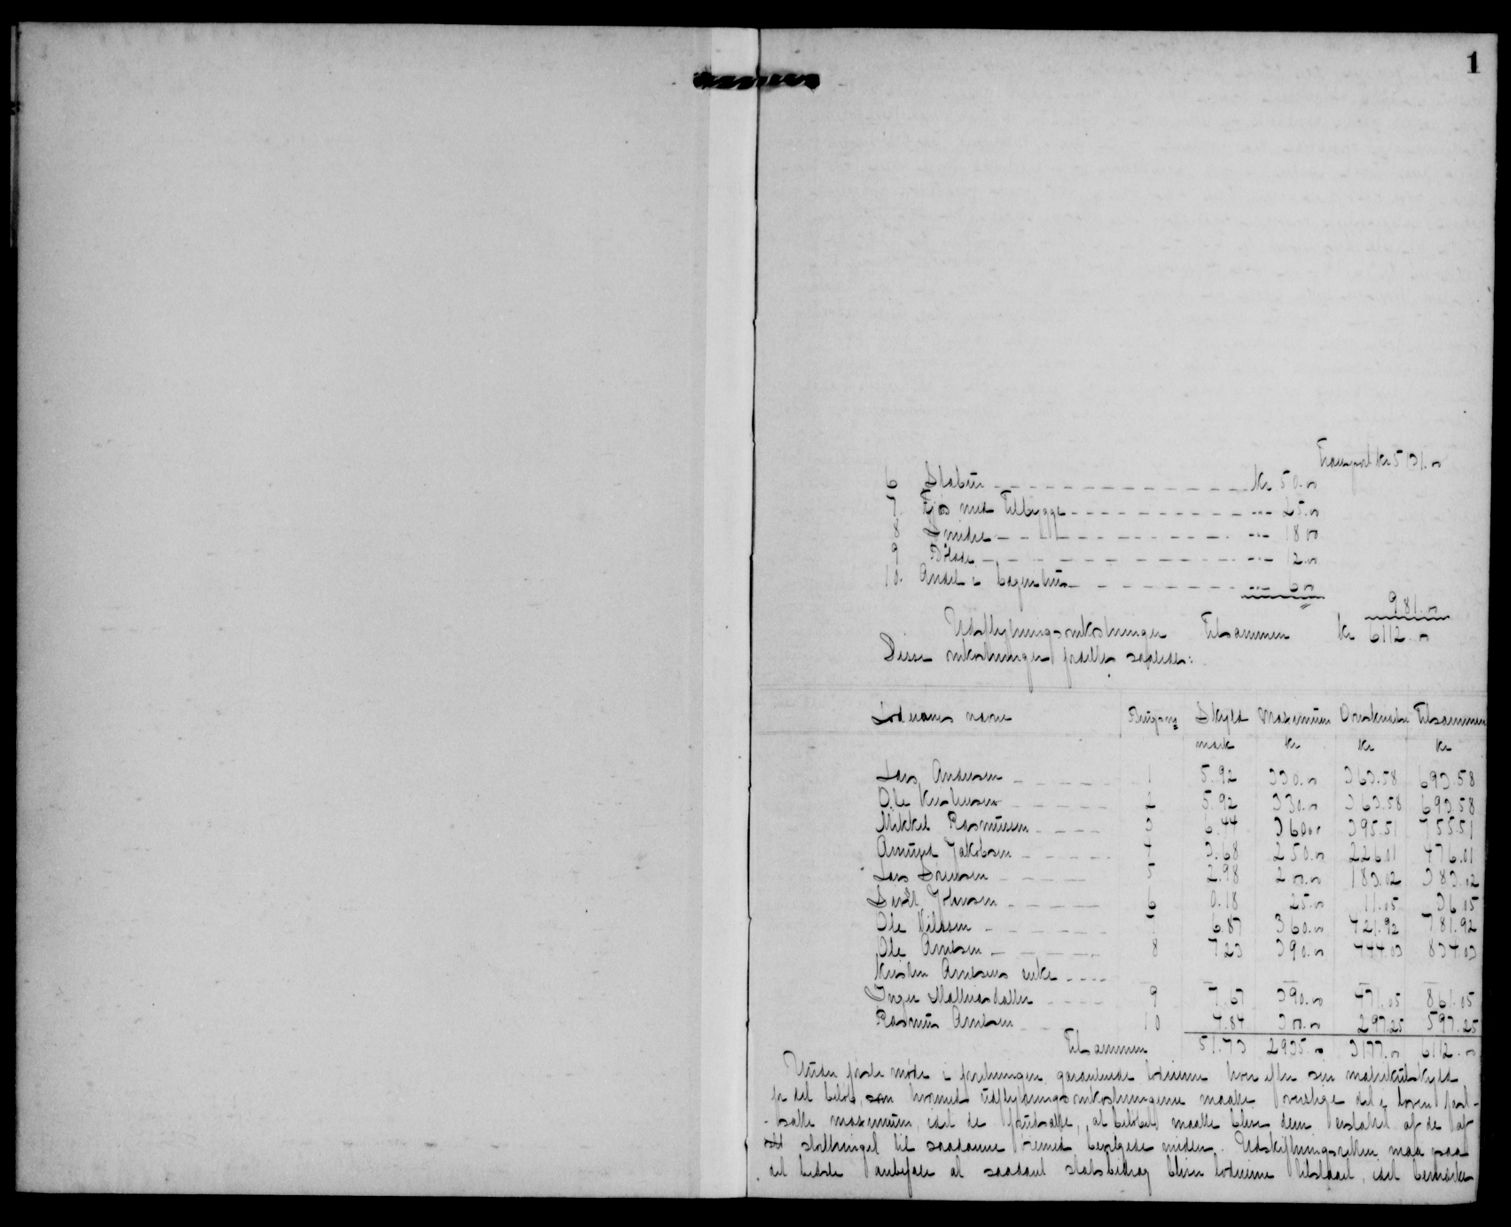 1
Transport kr 5131.00
6 Stabur kr 50.00
7. Fjøs med Tilbygge 25.00
8 Smidie 18 00
9 Blade 12.00
10. Andel i bagerhus 6 00
981.00
Udflytningsomkostninger Tilsammen kr 6112.00
Disse omkostninger fordeles saaledes:
Lodeiernes navne Brugsno Skyld Maximum Overskudn Tilsammen
mark kr kr kr
Lars Andersen 1 5.92 330.00 363.58 693.58
Ole Kristensen 2 5.92 330.00 363.58 693.58
Mikkel Rasmussen 3 6.44 360.00 395.51 755.51
Amund Jakobsen 4 3.68 250.00 226.01 476.01
Lars Sørensen 5 2.98 200.00 183.02 383.02
Johnsen 6 0.18 25.00 11.05 36.05
Ole Nilssen 7 6.87 360.00 421.92 781.92
Ole Arntsen 8 7.23 390.00 444.03 834.03
Arntsens enke
Inger Mathiasdatter 9 7.67 390.00 471.05 861.05
Rasmus Arntsen 10 4.84 300.00 297.25 597.25
Tilsammen 51.73 2935.00 3177.00 6112.00
Under første møde i forretningen garanterede lodeierne hver efter sin matrikulskyld
for det beløb, hvormed udflytningsomkostningerne maatte overstige det i loven fast-
satte maximum, idet de forudsatte, at beløbet maatte blive dem erstattet af de af
stortinget til saadanne øiemed bevilgede midler. Udskiftningsretten maa paa
det bedste anbefale at saadant statsbidrag bliver lodeierne tilstaaet, idet bemærkes